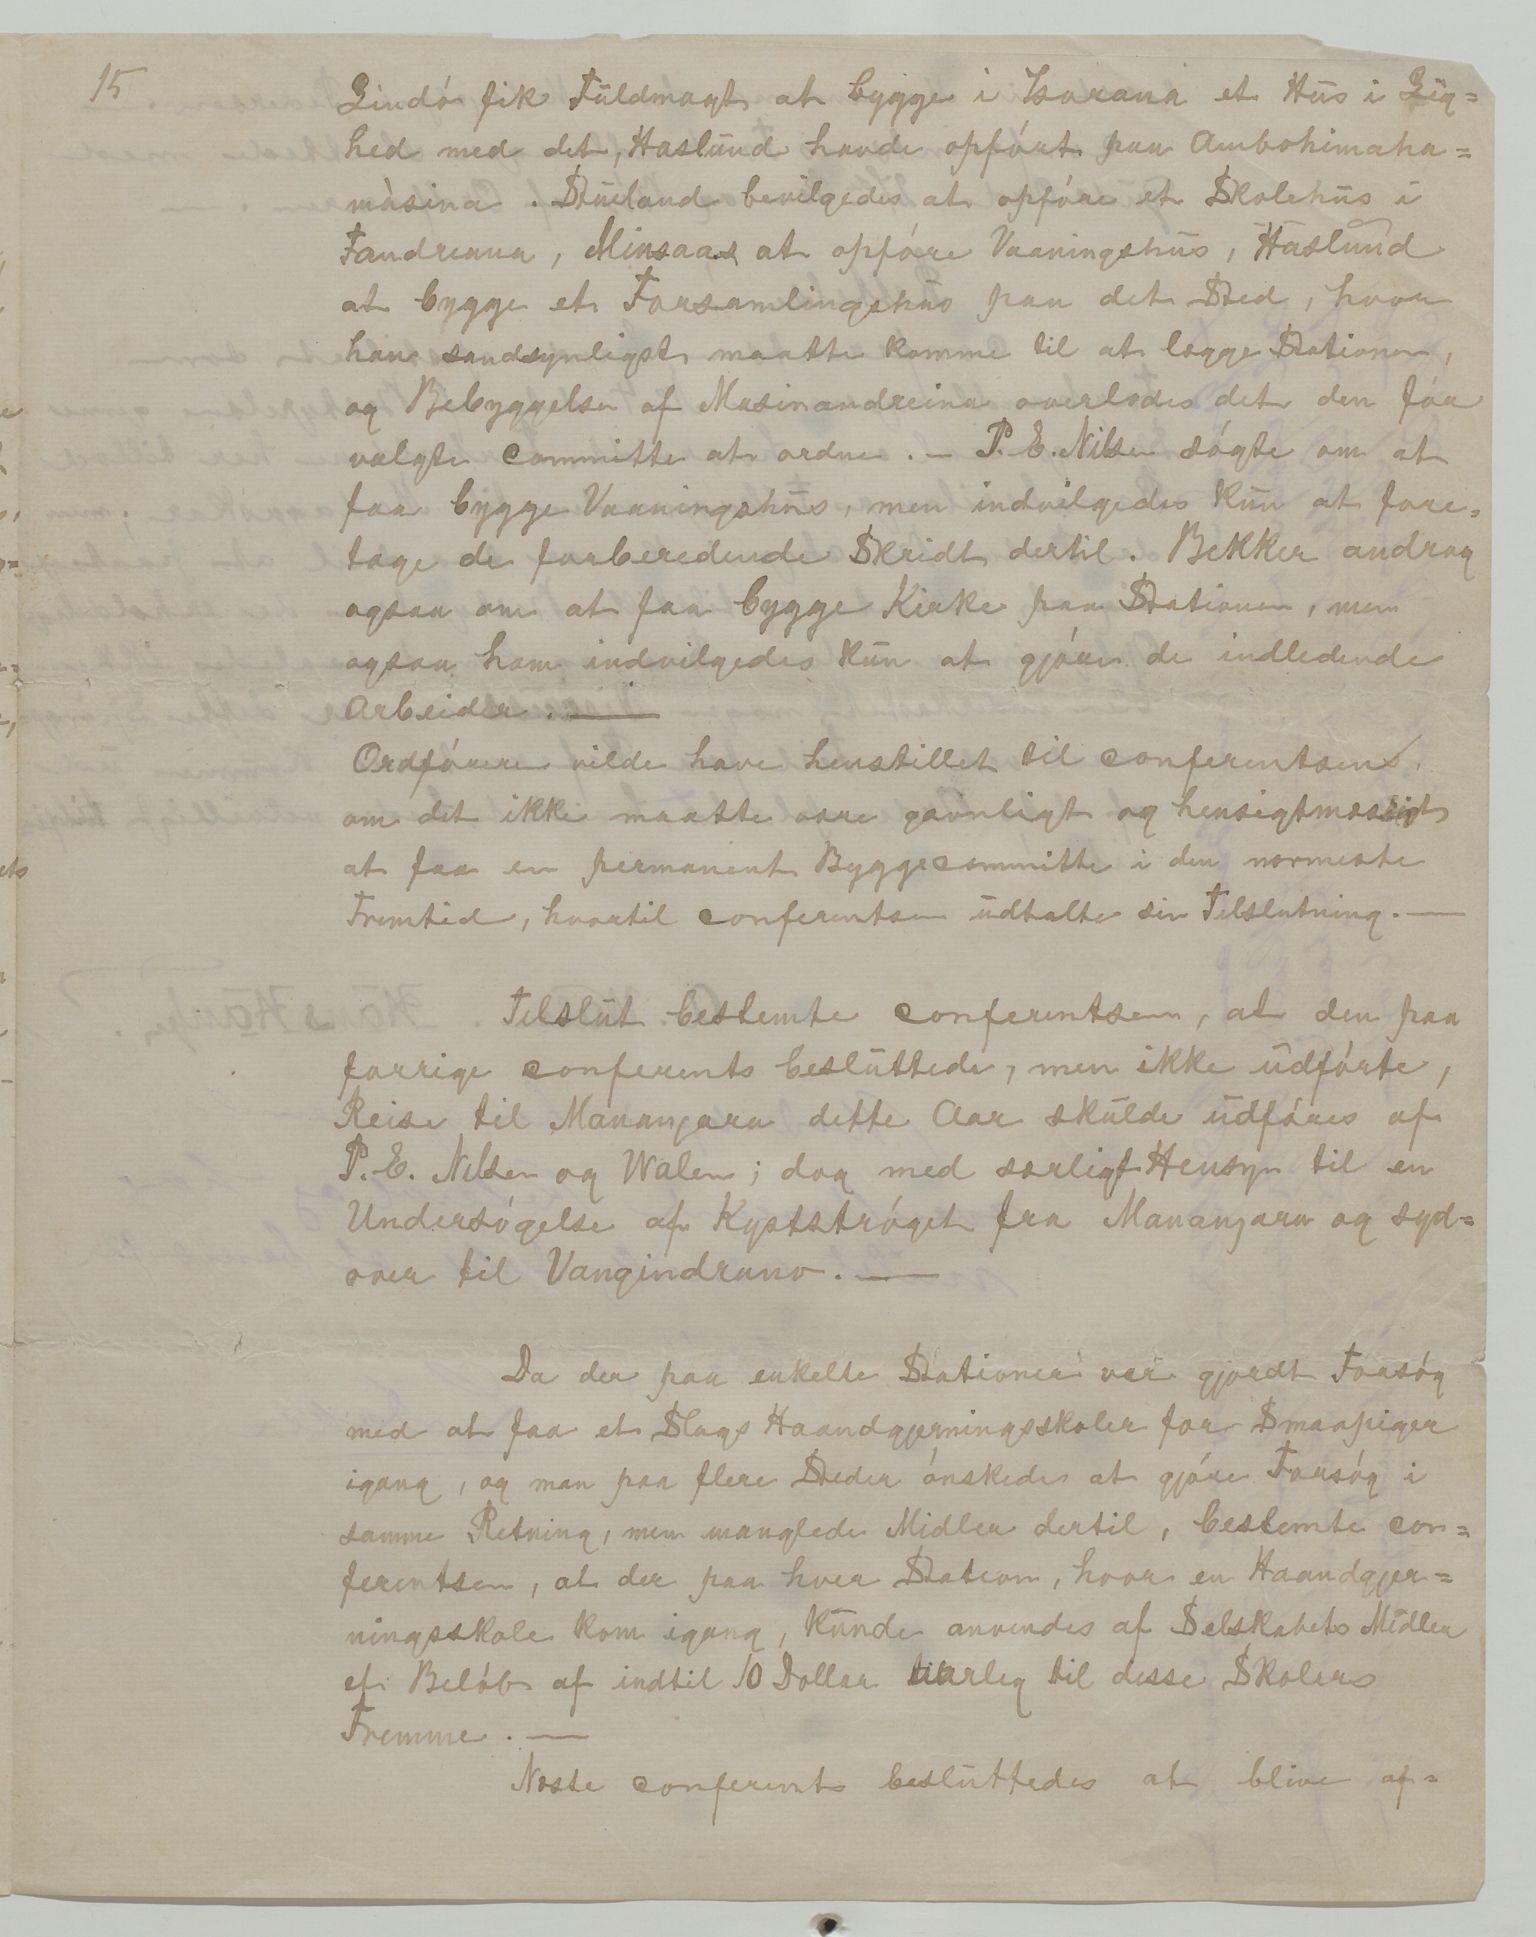 15
Lindö fik Fuldmagt at bygge i Isorana et Hus i Lig=
hed med det, Haslund havde opfört paa Ambohimaha=
màsina. Stueland bevilgedes at opföre et Skolehus i
Fandreana, Minsaas at opföre Vaaningshus, Haslund
at bygge et Forsamlingshus paa det Sted, hvor
han sandsynligst maatte komme til at lægge Stationen,
og Bebyggelsen af Masinandreina overlodes det den för
valgte Committe at ordne. — P. E. Nilsen sögte om at
faa bygge Vaaningshus, men indvilgedes kun at fore=
tage de forberedende Skridt dertil. Bekker androg
ogsaa om at faa bygge Kirke paa Stationen, men
ogsaa ham indvilgedes kun at gjöre de indledende
Arbeider. —
Ordförere vilde have henstillet til Conferentsen
om det ikke maatte være gavnligt og hensigtmæssigt
at faa en permanent Byggecommitte i den nærmeste
Fremtid, hvortil Conferentsen udtalte sin Tilslutning. —
Tilslut bestemte Conferentsen, at den paa
forrige Conferents besluttede, men ikke udförte,
Reise til Mananjara dette Aar skulde udföres af
P. E. Nilsen og Walen; dog med særligt Hensyn til en
Undersögelse af Kystströget fra Mananjara og syd=
over til Vangindrano. —
Da der paa enkelte Stationer var gjordt Forsög
med at faa et Slags Haandgjerningsskoler for Smaapiger
igang, og man paa flere Steder önskede at gjöre Forsög i
samme Retning, men manglede Midler dertil, bestemte Con=
ferentsen, at der paa hver Station, hvor en Haandgjer=
ningsskole kom igang, kunde anvendes af Selskabets Midler
et Belöb af indtil 10 Dollar aarlig til disse Skolers
Fremme. —
Næste Conferents besluttedes at blive af=